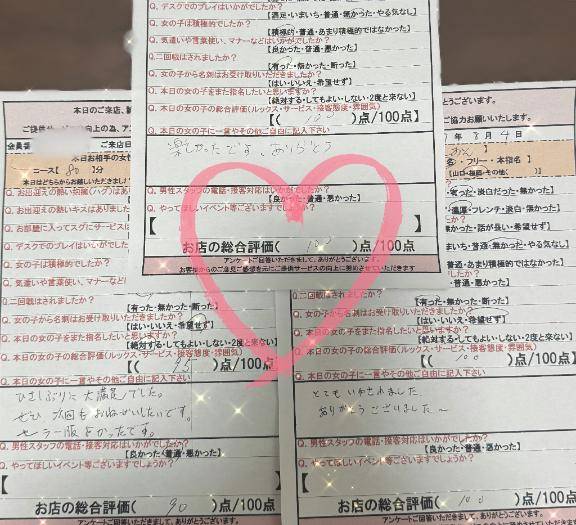 Q. デスクでのプレイはいかがでしたか?
【満足・いまいち・普通・無かった・やる気なし】
Q. 女の子は積極的でしたか?
【積極的・普通・あまり積極的ではなかった】
Q. 気遣いや言葉使い、マナーなどはいかがでしたか?
【良かった・普通・悪かった】
Q. 二回戦はされましたか?
【有った・無かった・断った】
Q. 女の子から名刺はお受け取りいただきましたか?
【はい・いいえ・希望せず】
Q. 本日の女の子をまた指名したいと思いますか?
【絶対する・してもよい・しない・2度と来ない】
Q. 本日の女の子の総合評価(ルックス・サービス・接客態度・雰囲気)
【(100)点/100点】
Q. 本日の女の子に一言やその他ご自由に記入下さい
楽しかったです、ありがとう
Q. 男性スタッフの電話・接客対応はいかがでしたか?
【良かった・普通・悪かった】
Q. やってほしいイベント等ございますでしょうか?
お店の総合評価(100)点/100点
アンケートご回答いただきまして、ありがとうございます。
本日のご来店、
会員番
ご来店日
本日お相手の女性
コース【80】分
Q. お出迎えの熱い抱擁(ハグ)はあり
Q. お出迎えの熱いキスはありました
Q. お部屋に入ってスグにサービスは
Q. デスクでのプレイはいかがでした
Q. 女の子は積極的でしたか?
Q. 気遣いや言葉使い、マナーなどは
Q. 二回戦はされましたか?
【有った・無かった・断った】
Q. 女の子から名刺はお受け取りいただきましたか?
【はい・いいえ・希望せず】
Q. 本日の女の子をまた指名したいと思いますか?
【絶対する・してもよい・しない・2度と来ない】
Q. 本日の女の子の総合評価(ルックス・サービス・接客態度・雰囲気)
【(95)点/100点】
Q. 本日の女の子に一言やその他ご自由に記入下さい
ひさしぶりに大満足でした。
ぜひ次回もおねがいしたいです。
セーラー服よかったです。
Q. 男性スタッフの電話・接客対応はいかがでしたか?
【良かった・普通・悪かった】
Q. やってほしいイベント等ございますでしょうか?
お店の総合評価(90)点/100点
アンケートご回答いただきまして、ありがとうございます。
とうございます。
ご協力お願いいたします。
年8月4日
・フリー・本指名】
・濃厚・フレンチ・淡白・無かった】
・いまいち・普通・無かった・やる気なし】
・普通・あまり積極的ではなかった】
・普通・悪かった】
Q. 二回戦はされましたか?
【有った・無かった・断った】
Q. 女の子から名刺はお受け取りいただきましたか?
【はい・いいえ・希望せず】
Q. 本日の女の子をまた指名したいと思いますか?
【絶対する・してもよい・しない・2度と来ない】
Q. 本日の女の子の総合評価(ルックス・サービス・接客態度・雰囲気)
【(100)点/100点】
Q. 本日の女の子に一言やその他ご自由に記入下さい
とてもいやされました
ありがとうございました〜
Q. 男性スタッフの電話・接客対応はいかがでしたか?
【良かった・普通・悪かった】
Q. やってほしいイベント等ございますでしょうか?
お店の総合評価(100)点/100点
アンケートご回答いただきまして、ありがとうございます。